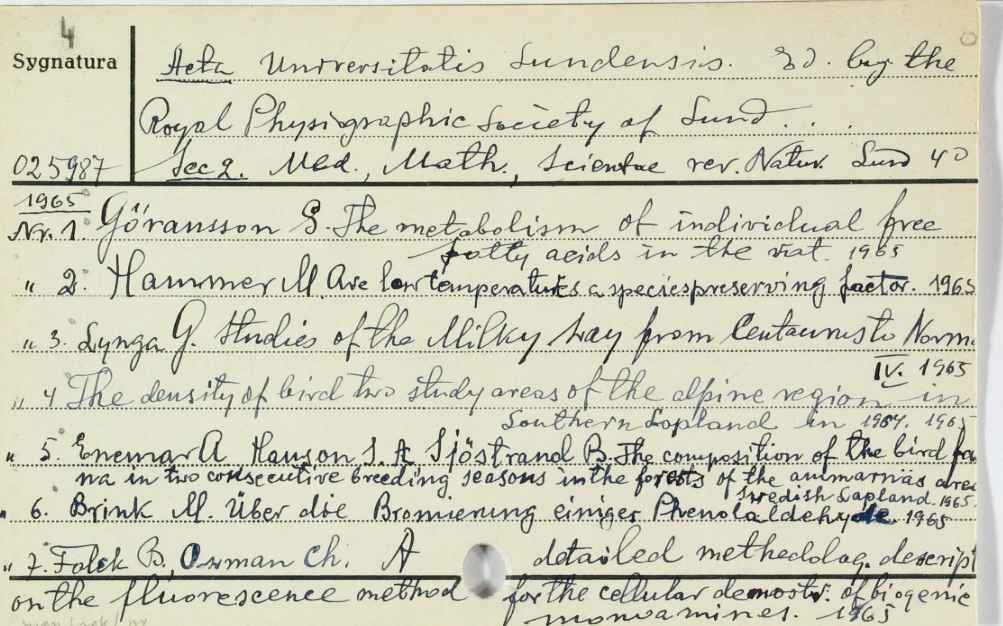 4
Sygnatura
Acta Universitatis Lundensis. Ed. by the
Royal Physigraphic Society of Lund...
025987 Sec 2. Med., Math., Scientae rev. Natur. Lund 40
1965
Nr. 1. Göransson G. The metabolism of individual free
fatty acids in the rat. 1965
" 2. Hammer M. Are low temperatures a speciespreserving factor. 1965
" 3. Lynga G. Studies of the Milky Way from Centaurus to Norm.
IV. 1965
" 4 The density of bird two study areas of the alpine region in
Southern Lapland in 1964. 1965
" 5. Enemar A Hanson S. A Sjöstrand B. The composition of the bird fau
na in two consecutive breeding seasons in the forests of the ammarnäs area
Swedish Lapland. 1965.
" 6. Brink M. Über die Bromierung einiger Phenolaldehyde. 1965
" 7. Falck B., Owman Ch. A detailed methodolog. descript
on the fluorescence method for the cellular demostr. of biogenic
monoamines. 1965